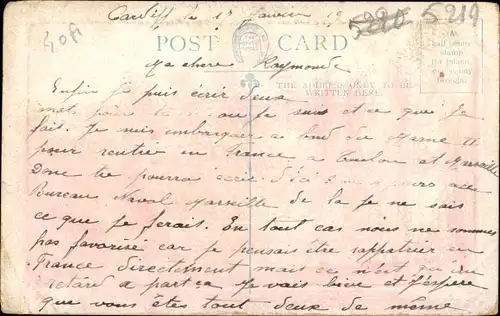 Cardiff le 15 Janvier 19
40A
5220 5219
POST CARD
Ma chère Raymonde
THE ADDRESS ONLY TO BE
WRITTEN HERE.
A
half penny
stamp
for inland
one penny
foreign
Enfin je puis écrir deux
mots pour où je suis et ce que je
fait. Je suis embarquer a bord du Marne II
pour rentré en France a Toulon et Marseille
Donc tu pourra écrir d'ici jours au
Bureau Naval Marseille de la je ne sais
ce que je ferais. En tout cas nous ne sommes
pas favorisé car je pensais être rapatrier en
France directement mais ce n'est qu'un
retard a part ça je vais bien et j'espère
que vous êtes tout deux de même